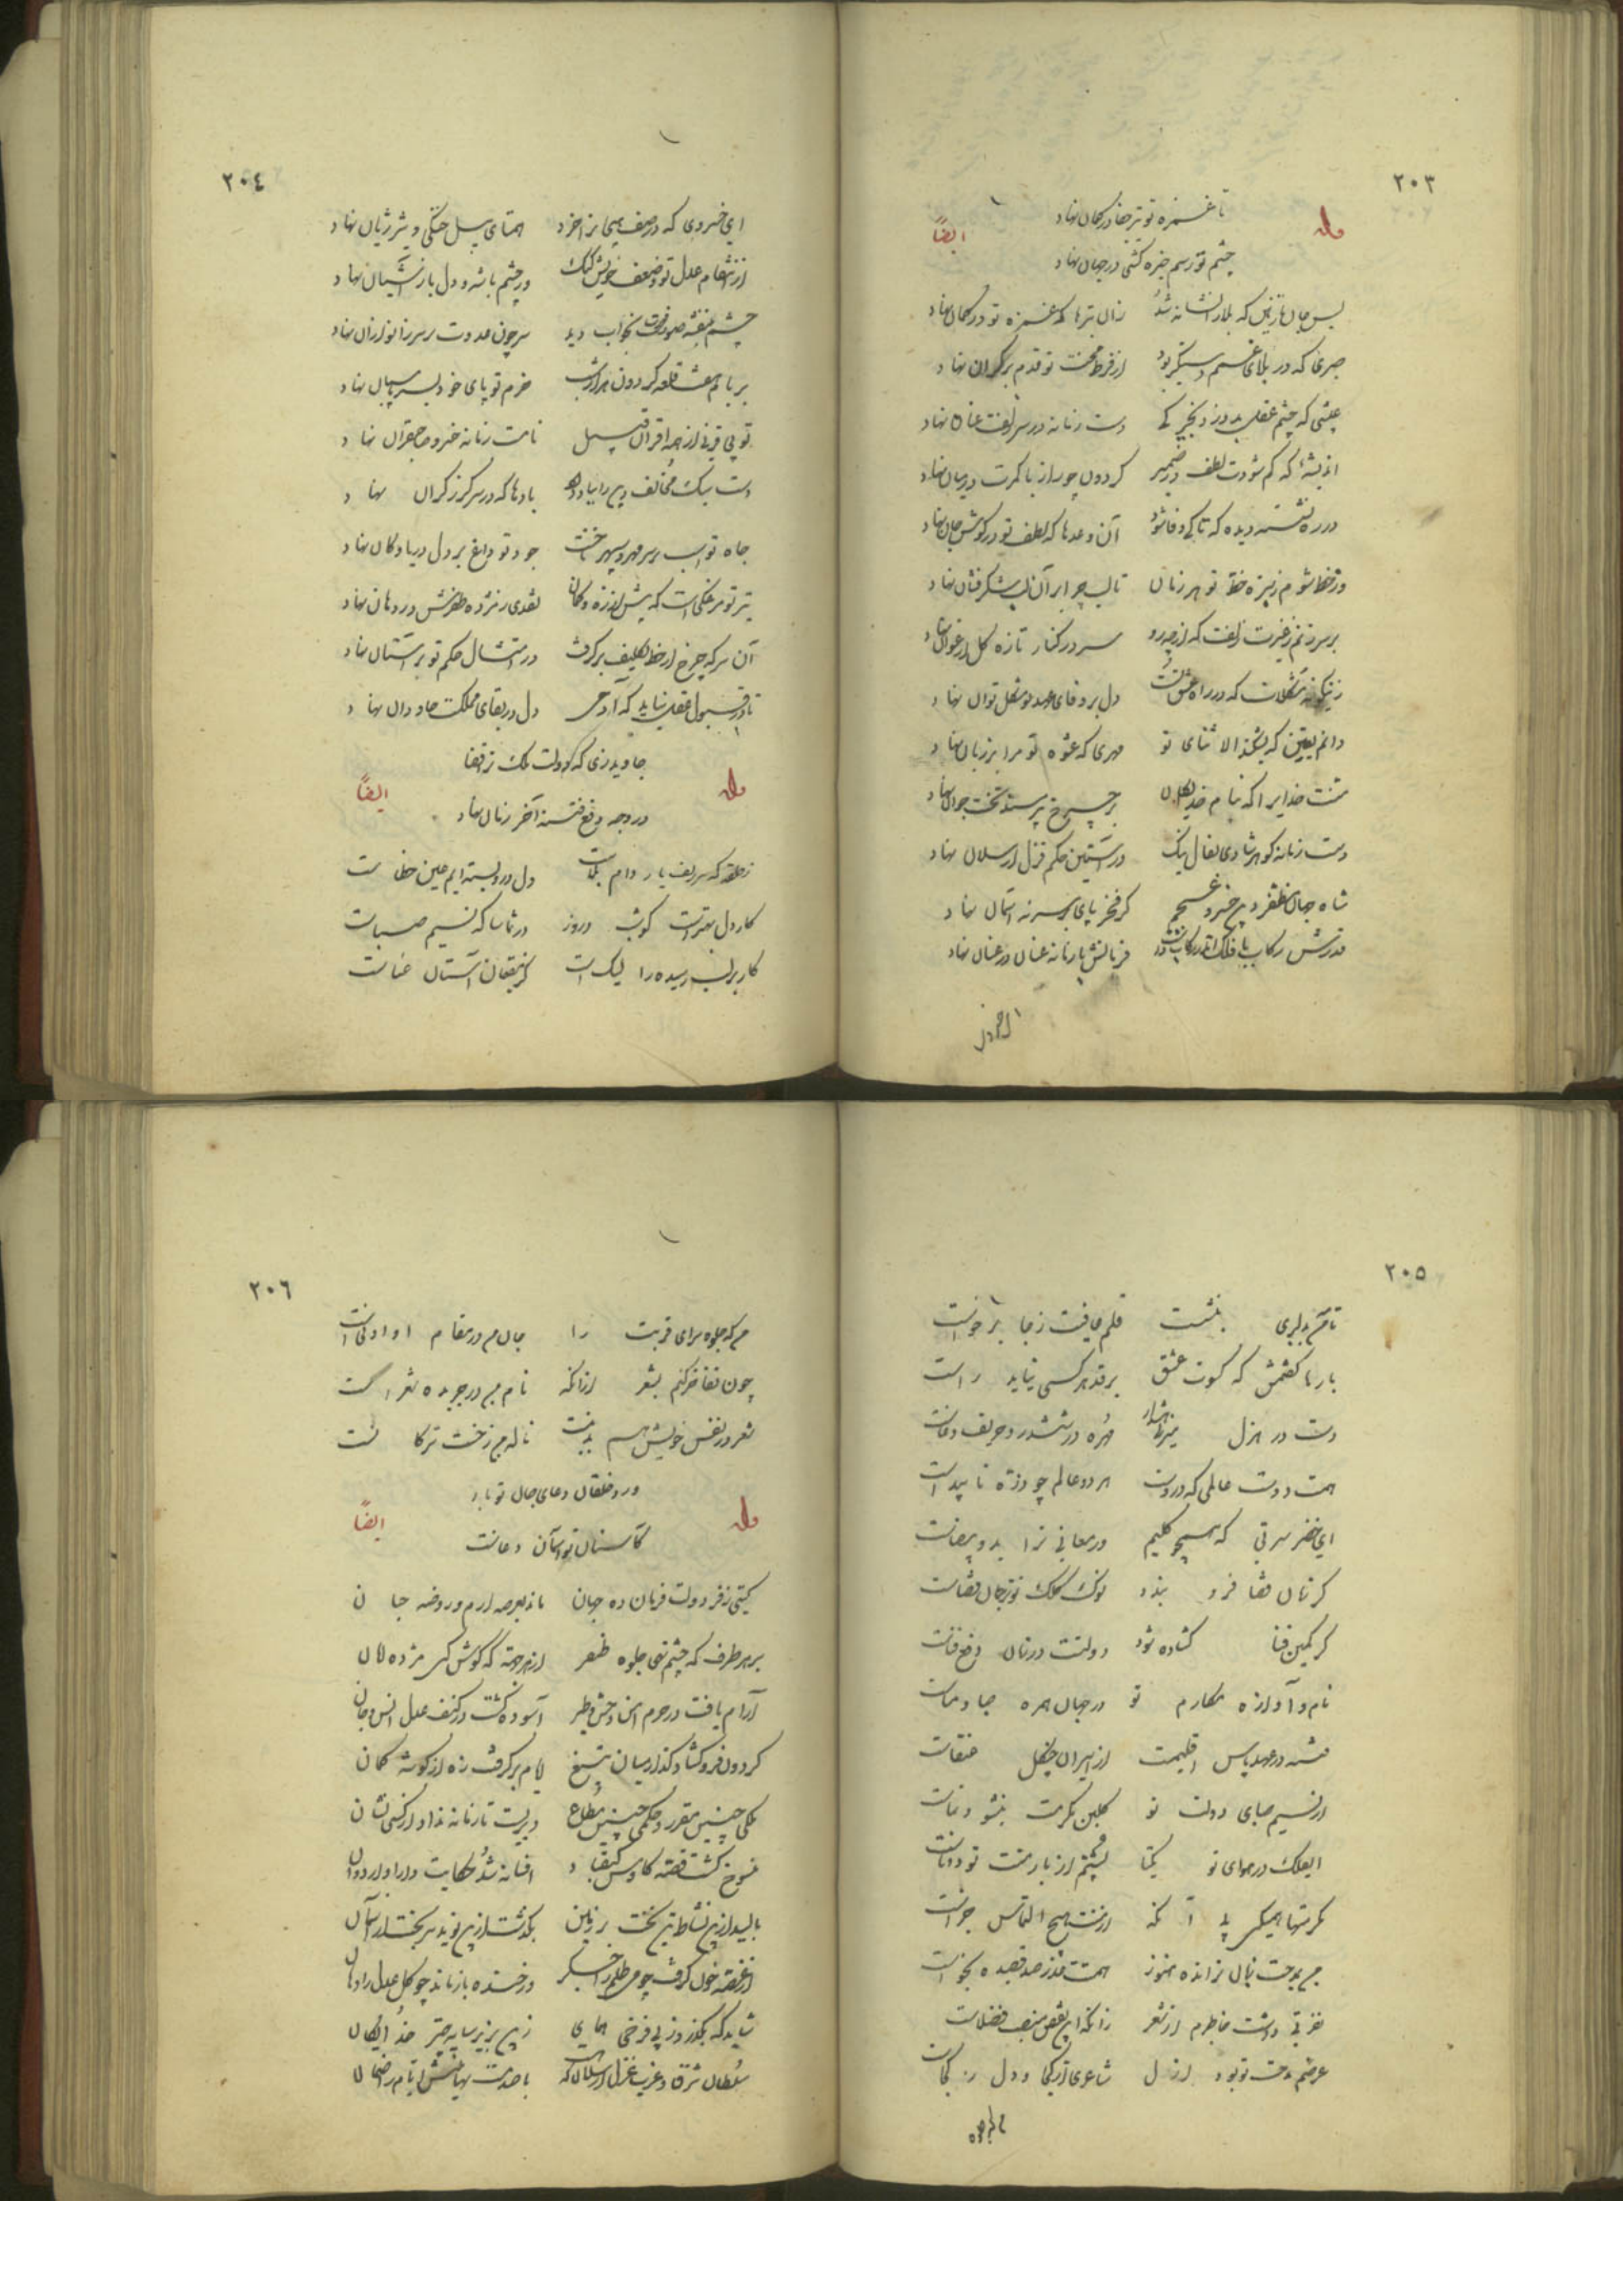 ٢٠٣
تا غمزه تو تیر جفا در کمان نهاد
وله ایضاً
چشم تو رسم خیره کشی در جهان نهاد
بس جان نازنین که بلا را نشانه شد زان تیرها که غمزه تو در کمان نهاد
صبری که در بلای غم دستگیر بود از فرط محنت تو قدم بر کران نهاد
عیشی که چشم عقل بدو زد دست زمانه در سر زلفت عنان نهاد
اندیشه که کم شود از لطف در ضمیر گردون چو راز با کمرت در میان نهاد
در ره نشسته دیده که تا کی وفا شود آن وعدها که لطف تو در گوش جان نهاد
در خط شوم ز سبزه خط تو هر زمان تا لب چرا بر آن لب شکرفشان نهاد
بر سر زنم ز غیرت زلفت که از چه رو سر در کنار تازه گل ارغوان نهاد
زینگونه مشکلات که در راه عشق تست دل بر وفای عهد تو مشکل توان نهاد
دانم یقین که نشکند الا ثنای تو مهری که عشوه تو مرا بر زبان نهاد
منت خدایرا که بنام خدایگان چرخ پیر مسند تخت جوان نهاد
دست زمانه گوهر شادی بفال نیک در آستین حکم قزل ارسلان نهاد
شاه جهان مظفر دین خسرو عجم کز فخر پای بر سر نه آسمان نهاد
قدرش رکاب با فلک اندر رکاب بست فرمانش با زمانه عنان در عنان نهاد
٢٠٤
ای خسروی که در صف هیجا ترا خرد همتای پیل جنگی و شیر ژیان نهاد
از انتقام عدل تو ضعف خویش کبک در چشم باشه و دل باز آشیان نهاد
چشم بنفشه صورت بخواب دید سر چون عدوت بر سر زانو از آن نهاد
بر بام هشت قلعه گردون هزار شب حزم تو پای خود بسر پاسبان نهاد
تو بی قرینی از همه اقران قبیل نامت زمانه خسرو صاحبقران نهاد
دست سبک مخالف دین را بباد داد بادها که در سر گرز گران نهاد
جاه تو اسب بر سر مهر و سپهر تاخت جود تو داغ بر دل دریا و کان نهاد
تیر تو مرغکی است که پیش از زه و کمان نقدی ز مژده ظفرش در دهان نهاد
آن سر که چرخ از خط تکلیف برگرفت در امتثال حکم تو بر آستان نهاد
تا در قبول عقل نیاید که آدمی دل در بقای مملکت جاودان نهاد
جاوید زی که دولت ملک تو قضا
وله ایضاً
در وجه دفع فتنه آخر زمان نهاد
ز حلقه که سر زلف یار دام بلاست دل درو بسته ایم عین خطاست
کار دل بهتر است کو شب و روز در تماشا که نسیم صباست
کار بر لب رسیده را لیک است کز مقیمان آستان عناست
٢٠٥
تا غم دلبری بنشست قلم عافیت ز جا برخاست
بارها گفتمش که کسوت عشق بر قد هر کسی نیاید راست
دست در هزل میزند مهره در ششدر و حریف دغاست
هست دوست عالمی که در اوست هر دو عالم چو ذره نا پیداست
ای خضر سیرتی که همچو کلیم در معانی ترا ید و بیضاست
گر زبان قضا فرو بندد نوک کلک تو ترجمان قضاست
گر کمین فنا گشاده شود دولتت در زمان دفع فناست
نام و آوازه مکارم تو در جهان همره صبا و نماست
فتنه در عهد پاس اقلیمت از اسیران چنگل عنقاست
از نسیم صبای دولت تو گلبن مکرمت بنشو و نماست
ای فلک در هوای تو یکتا پشتم از بار منت تو دوتاست
مکرمتها همیکنی با آنکه از منت هیچ التماس جزاست
من بمدحت زبان نرانده هنوز همتت عذر صد قصیده بخواست
نفرتی داشت خاطرم از شعر زانکه این نقص منصب فضلاست
عرضم مدحت تو بود ار نه شاعری از کجا و دل ز کجاست
٢٠٦
من که جلوه سرای قربت را جان من در مقام او ادنی است
چون تفاخر کنم بشعر ازانکه نام من در جریده شعراست
شعر در نفس خویش هم بد نیست ناله من ز خست شرکاست
ورد خلقان دعای جان تو باد
وله ایضاً
کاستان تو آسمان دعاست
گیتی ز فر دولت فرمان ده جهان ماند بعرصه ارم و روضه جنان
بر هر طرف که چشم نهی جلوه ظفر از هر جهة که گوش کنی مژده امان
آرام یافت در حرم امن وحش و طیر آسوده گشت در کنف عدل انس و جان
گردون فرو گشاد کمند از میان تیغ ایام برگرفت زه از گوشه کمان
ملکی چنین مقرر و حکمی چنین مطاع دیریست تا زمانه نداد از کسی نشان
منسوخ گشت قصه کاوس و کیقباد افسانه شد حکایت دارا و اردوان
بالید ازین نشاط تن تخت بر زمین بگذشت ازین نوید سر بخت از آسمان
از غصه خون گرفت چو می ظلم را جگر در خنده باز ماند چو گل عدل را دهان
شاید که بگذرد ز پی فرخی همای زین پس بزیر سایه چتر خدایگان
سلطان شرق و غرب قزل ارسلان که با حدت نهیبش ایام رضا